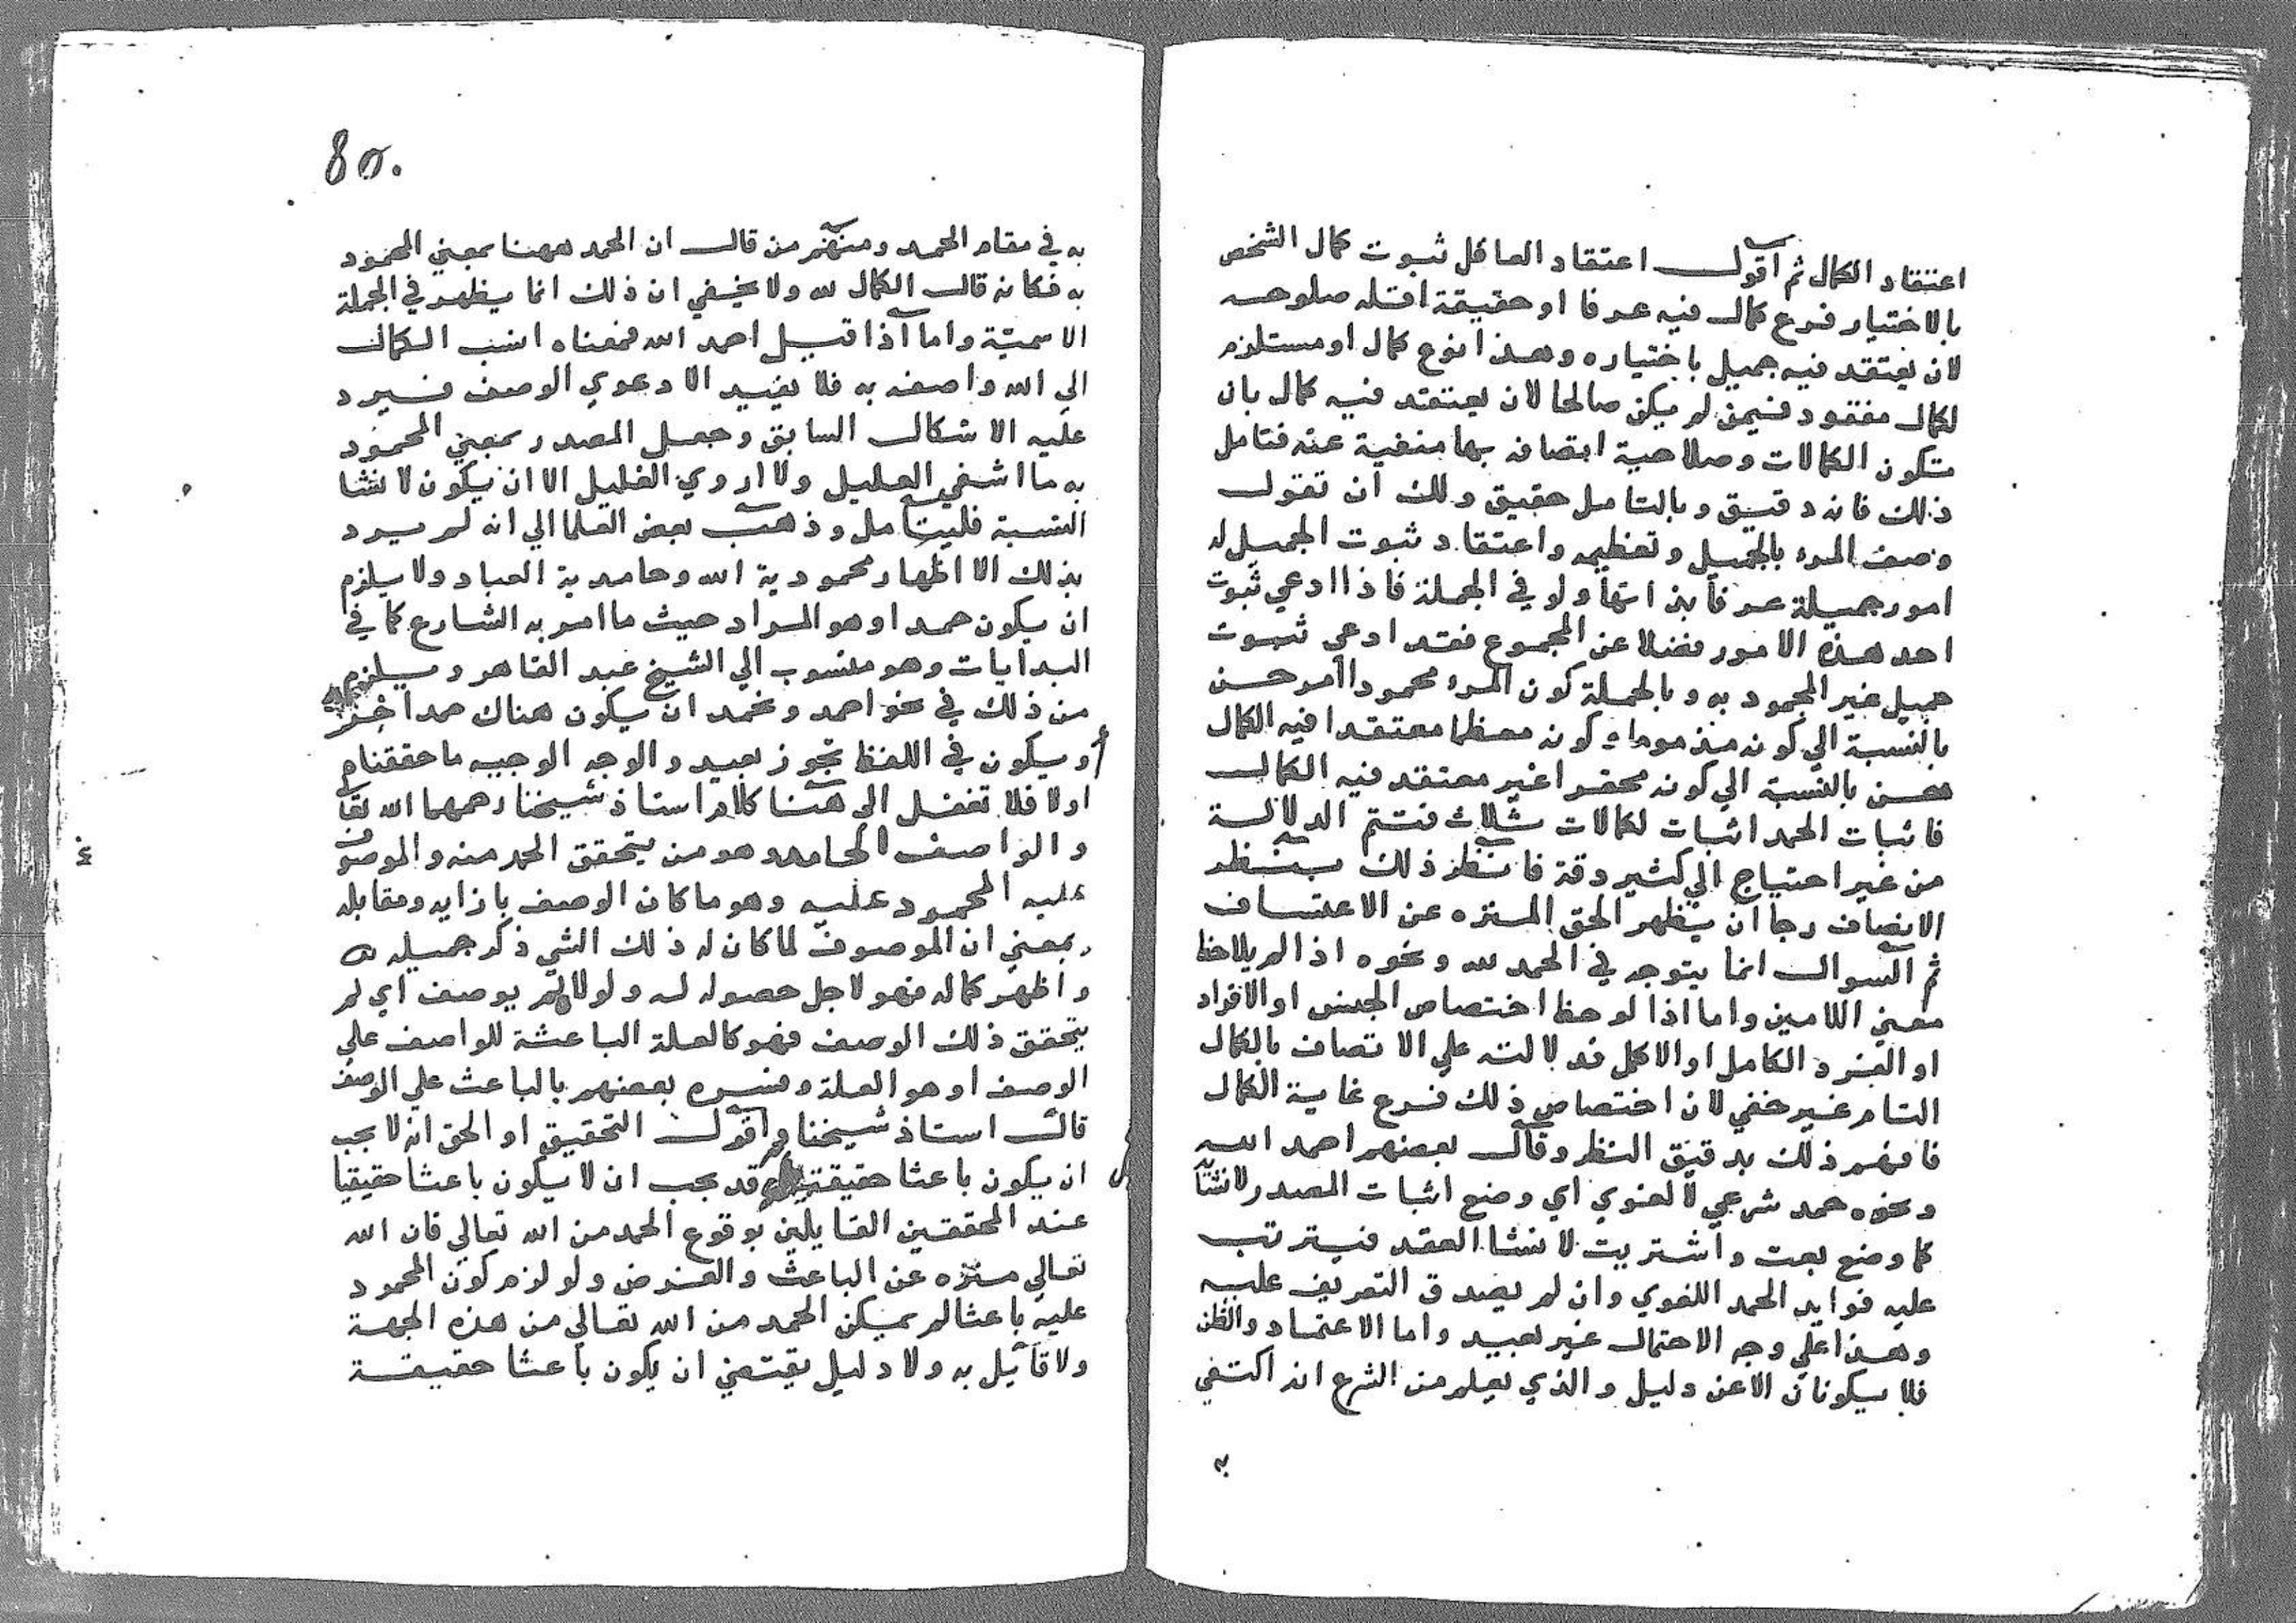 اعتقاد الكمال ثم اقول اعتقاد العاقل ثبوت كمال الشخص
بالاختيار فرع كمال فيه عرفا او حقيقة اقله صلوحه
لان يعتقد فيه جميل باختياره وهذا نوع كمال او مستلزم
لكمال مفقود فيمن لم يكن صالحا لان يعتقد فيه كمال بان
تكون الكمالات وصلاحية اتصافه بها منفية عنه فتامل
ذلك فانه دقيق وبالتامل حقيق ولك ان تقول
وصف المرء بالجميل وتعظيمه واعتقاد ثبوت الجميل له
امور جميلة عرفا بذاتها ولو في الجملة فاذا ادعي ثبوت
احد هذه الامور فضلا عن المجموع فقد ادعي ثبوت
جميل غير المحمود به وبالجملة كون المرء محمودا امر حسن
بالنسبة الي كونه مذموما وكونه معظما معتقدا فيه الكمال
حسن بالنسبة الي كونه محقرا غير معتقد فيه الكمال
فاثبات الحمد اثبات لكمالات ثلاث فتتم الدلالة
من غير احتياج الي كثير دقة فانظر ذلك بنظر
الانصاف رجا ان يظهر الحق المنزه عن الاعتساف
ثم السوال انما يتوجه في الحمد لله ونحوه اذا لم يلاحظ
معني اللامين واما اذا لوحظ اختصاص الجنس او الافراد
او الفرد الكامل او الاكمل فدلالته علي الاتصاف بالكمال
التام غير خفي لان اختصاص ذلك فرع غاية الكمال
فافهم ذلك بدقيق النظر وقال بعضهم احمد الله
ونحوه حمد شرعي لا لغوي اي وضع اثبات المصدر لانشا
كما وضع بعت واشتريت لانشا العقد فيترتب
عليه فوايد الحمد اللغوي وان لم يصدق التعريف عليه
وهذا علي وجه الاحتمال غير بعيد واما الاعتماد والظن
فلا يكونان الا عن دليل والذي يعلم من الشرع انه اكتفي
به في مقام الحمد ومنهم من قال ان الحمد ههنا بمعني المحمود
به فكانه قال الكمال لله ولا يخفي ان ذلك انما يظهر في الجملة
الاسمية واما اذا قيل احمد الله فمعناه انسب الكمال
الي الله واصفه به فلا يفيد الا دعوي الوصف فيرد
عليه الاشكال السابق وجعل المصدر بمعني المحمود
به ما اشفي العليل ولا اروي الغليل الا ان يكون لانشا
النسبة فليتامل وذهب بعض العلما الي انه لم يرد
بذلك الا اظهار محمودية الله وحامدية العباد ولا يلزم
ان يكون حمدا وهو المراد حيث ما امر به الشارع كما في
البدايات وهو منسوب الي الشيخ عبد القاهر ويلزم
من ذلك في نحو احمد ونحمد ان يكون هناك حمد اخر
او يكون في اللفظ تجوز بعيد والوجه الوجيه ما حققناه
اولا فلا تغفل الي هنا كلام استاذ شيخنا رحمهما الله تعا
والواصف الحامد وهو من يتحقق الحمد منه والموصوف
عليه المحمود عليه وهو ما كان الوصف بازايه ومقابله
بمعني ان الموصوف لما كان له ذلك الشي ذكر جميله
واظهر كماله فهو لاجل حصوله له ولولاه لم يوصف اي لم
يتحقق ذلك الوصف فهو كالعلة الباعثة للواصف علي
الوصف او هو العلة وفسره بعضهم بالباعث علي الوصف
قال استاذ شيخنا واقول التحقيق او الحق انه لا يجب
ان يكون باعثا حقيقة وقد يجب ان لا يكون باعثا حقيقيا
عند المحققين القايلين بوقوع الحمد من الله تعالي فان الله
تعالي منزه عن الباعث والغرض ولو لزم كون المحمود
عليه باعثا لم يمكن الحمد من الله تعالي من هذه الجهة
ولا قائيل به ولا دليل يقتضي ان يكون باعثا حقيقة